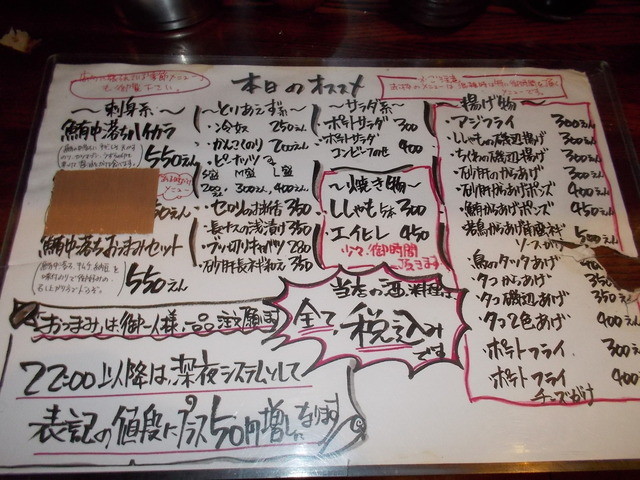 本日のオススメ
〜刺身系〜
鮪中落ち
550えん
鮪中落ちおつまみセット
550えん
〜とりあえず系〜
・冷奴 250えん
・がんこくのり 200えん
・ピーナッツ
S盛 M盛 L盛
200えん 300えん 400えん
・セロリのお新香 350
・長ナスの浅漬け 350
280
350
〜サラダ系〜
・ポテトサラダ 300
・ポテトサラダ
コンビーフのせ 400
〜焼き物〜
・ししゃも 5本 300
・エイヒレ 450
少々御時間
頂きます
揚げ物
・アジフライ 300えん
・ししゃもの磯辺揚げ 300えん
・ちくわの磯辺揚げ 300えん
・砂肝のからあげ 300えん
・砂肝からあげポンズ 400えん
・鮪からあげポンズ 450えん
ソースがけ 500えん
・鳥のタツタあげ
・タコからあげ 350えん
・タコ磯辺あげ 350えん
・タコ2色あげ 400えん
・ポテトフライ 300えん
・ポテトフライ 400
チーズがけ
当店の酒、料理は
全て税込み
です
おつまみは御一人様一品注文願います
22:00以降は、深夜システムとして
表記の値段にプラス50円増しになります